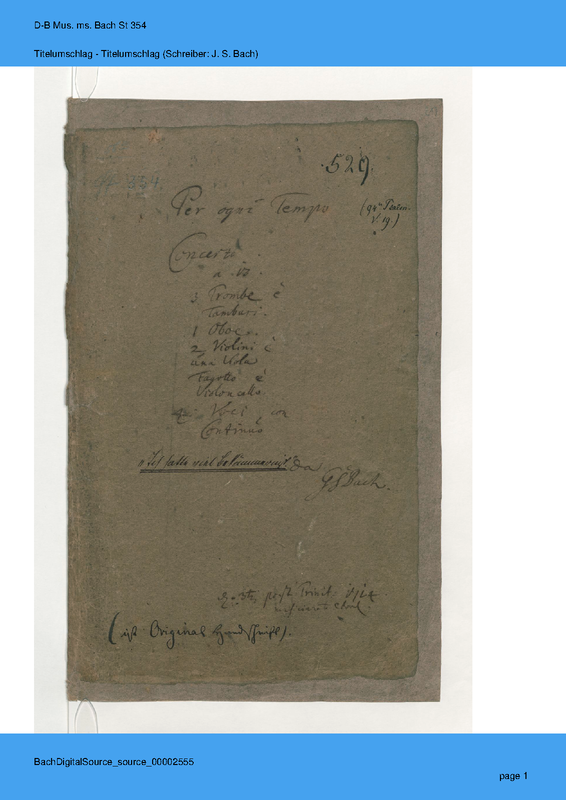 D-B Mus. ms. Bach St 354
Titelumschlag - Titelumschlag (Schreiber: J. S. Bach)
529.
Per ogni Tempo
(94. Psalm.
V. 19.)
Concerto
a 13.
3 Trombe è
Tamburi.
1 Oboe.
2 Violini è
una Viola
Fagotto è
Violoncello.
4 Voci con
Continuo
"Ich hatte viel Bekümmernis" da
G S Bach.
post Trinit.
(ist Original Handschrift).
BachDigitalSource_source_00002555
page 1